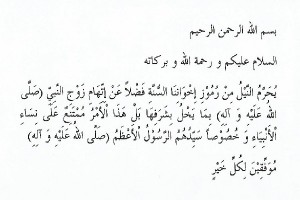 بسم الله الرحمن الرحيم
السلام عليكم و رحمة الله و بركاته
يُحَرَّمُ النَّيْلُ مِنْ رُمُوْزِ إِخْوَانِنَا السُّنَّةِ فَضْلاً عَنْ إِتِّهَامِ زَوْجِ النَّبِيِّ (صَلَّى
اللهُ عَلَيْهِ وَ آلِهِ) بِمَا يَخْلُ بِشَرَفِهَا بَلْ هَذَا الْأَمْرُ مُمْتَنِعٌ عَلَى نِسَاءِ
الْأَنْبِيَاءِ وَ خُصُوْصاً سَيِّدُهُمْ الرَّسُوْلُ الْأَعْظَمُ (صَلَّى اللهُ عَلَيْهِ وَ آلِهِ)
مُوَفَّقِيْنَ لِكُلِّ خَيْرٍ